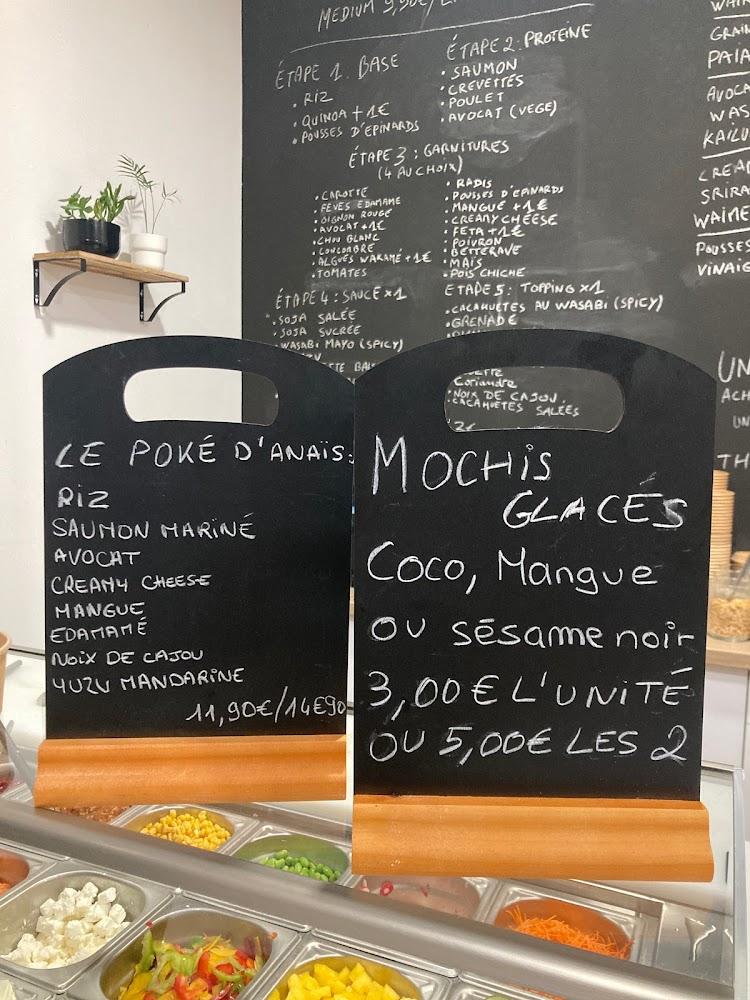 MEDIUM 9,90€/
ÉTAPE 1. BASE
• RIZ
• QUINOA +1€
• POUSSES D'EPINARDS
ÉTAPE 2. PROTEINE
• SAUMON
• CREVETTES
• POULET
• AVOCAT (VEGE)
ÉTAPE 3 : GARNITURES
(4 AU CHOIX)
• CAROTTE
• FÈVES EDAMAME
• OIGNON ROUGE
• AVOCAT +1€
• CHOU BLANC
• CONCOMBRE
• ALGUES WAKAMÉ +1€
• TOMATES
• RADIS
• POUSSES D'EPINARDS
• MANGUE +1€
• CREAMY CHEESE
• FETA +1€
• POIVRON
• BETTERAVE
• MAÏS
• POIS CHICHE
ÉTAPE 4 : SAUCE x1
• SOJA SALÉE
• SOJA SUCRÉE
• WASABI MAYO (SPICY)
ETAPE 5 : TOPPING x1
• CACAHUETES AU WASABI (SPICY)
• GRENADE
Coriandre
• NOIX DE CAJOU
• CACAHUETES SALÉES
GRAIN
AVOCA
WAS
CREA
SRIRA
POUSSES
VINAIG
UN
ACH
UN
TH
LE POKÉ D'ANAÏS:
RIZ
SAUMON MARINÉ
AVOCAT
CREAMY CHEESE
MANGUE
EDAMAMÉ
NOIX DE CAJOU
YUZU MANDARINE
11,90€/14€90
MOCHIS
GLACÉS
Coco, Mangue
OU sésame noir
3,00€ L'UNITÉ
OU 5,00€ LES 2